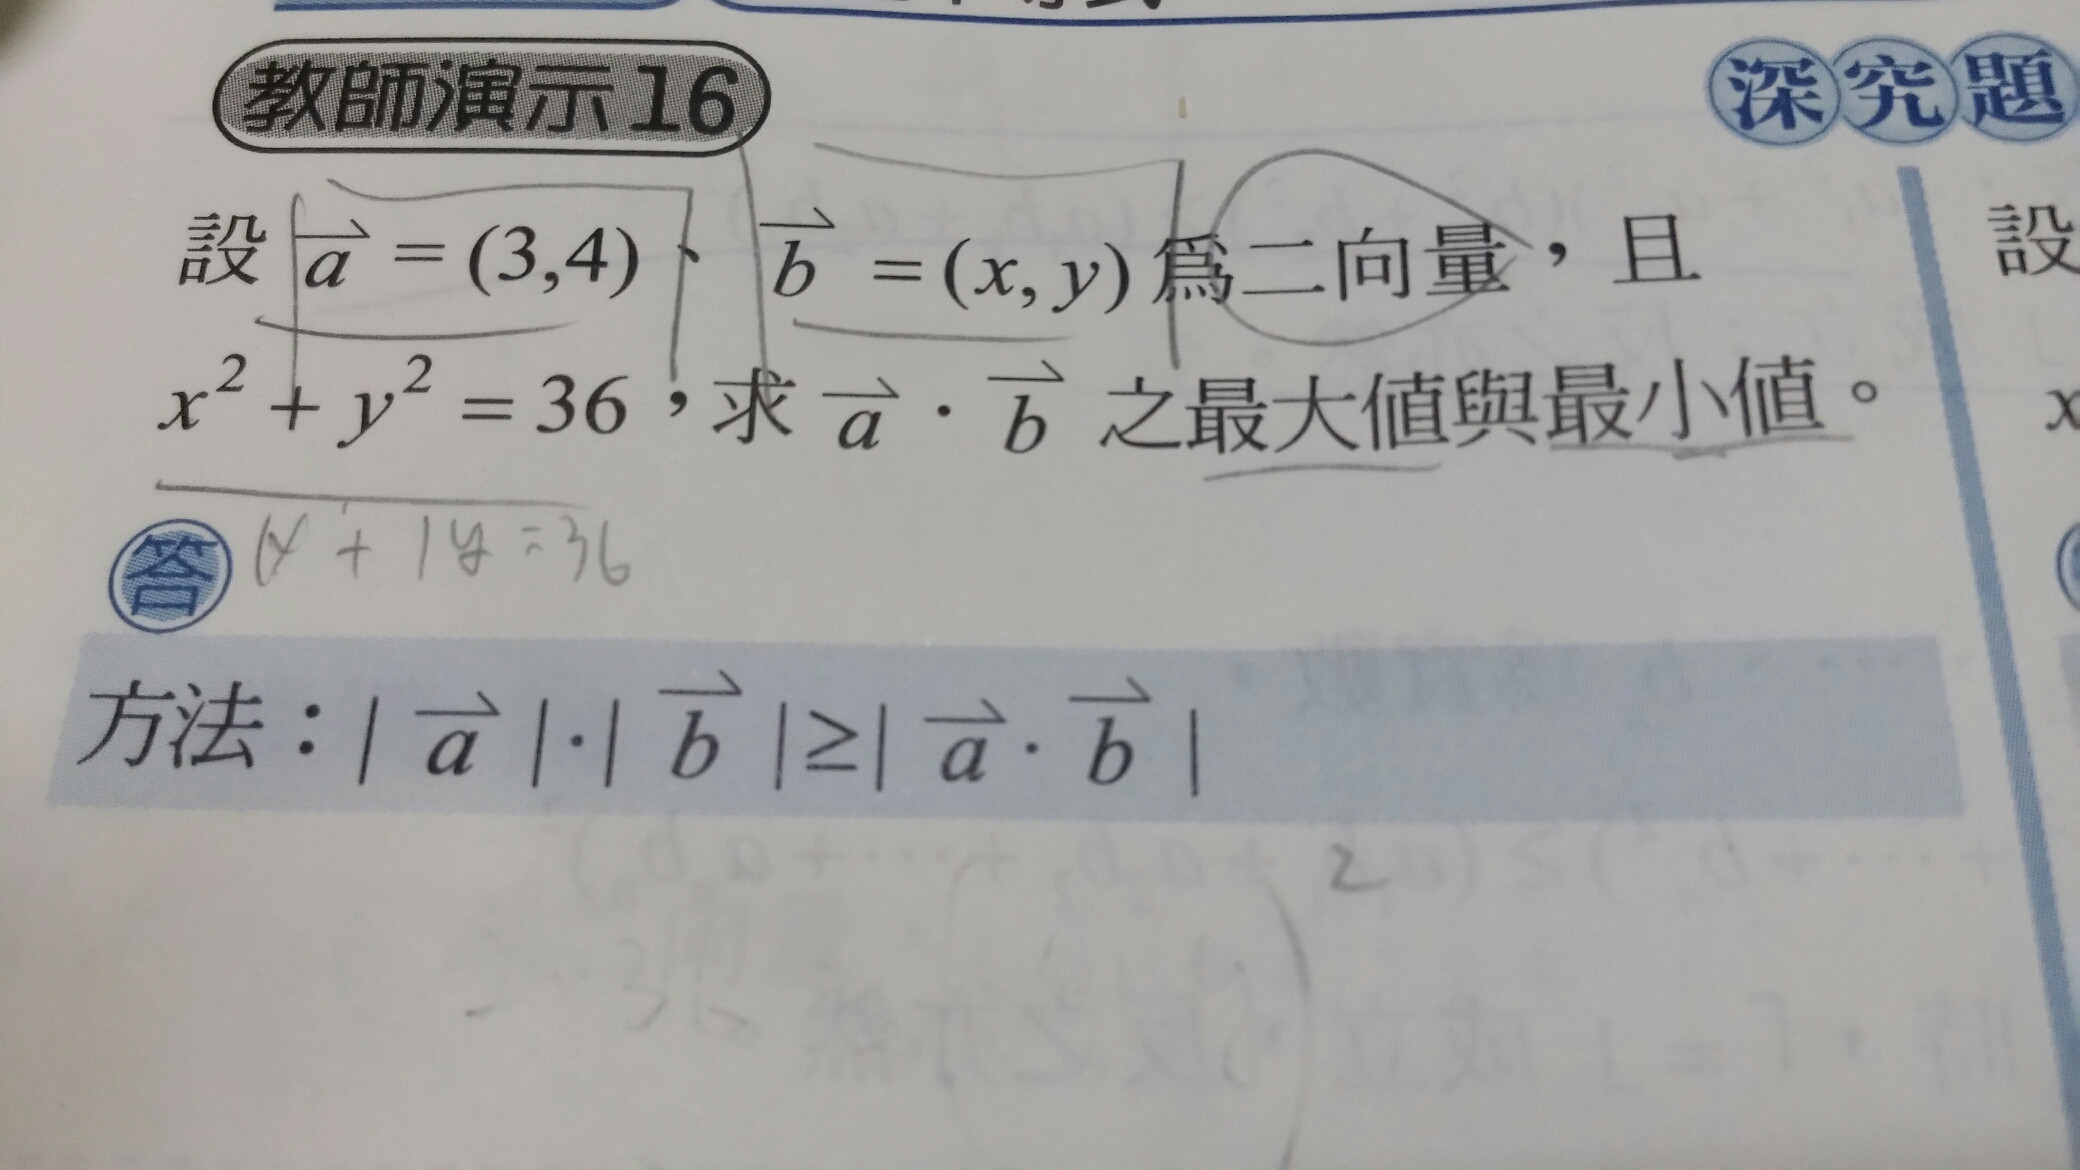 教師演示16
深究題
設 a⃗ = (3,4)、b⃗ = (x, y) 爲二向量，且
x² + y² = 36，求 a⃗ · b⃗ 之最大値與最小値。
答 1x + 1y = 36
方法：| a⃗ | · | b⃗ | ≥ | a⃗ · b⃗ |
2
設
x